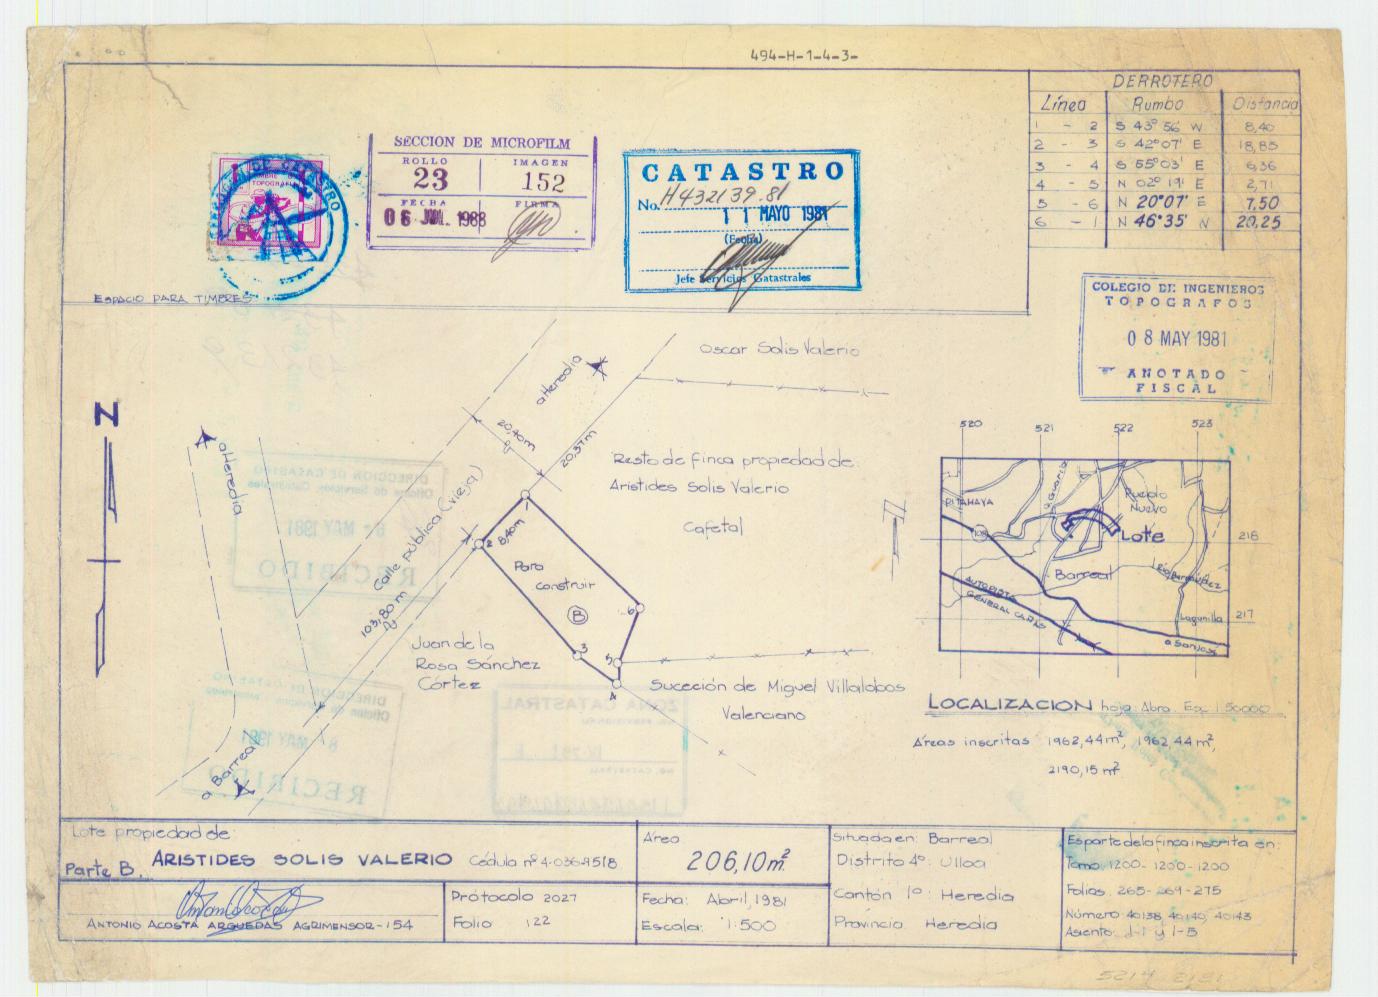 494-H-1-4-3-
DERROTERO
Línea Rumbo Distancia
1 - 2 S 43° 56' W 8,40
2 - 3 S 42° 07' E 18,85
3 - 4 S 55° 03' E 6,36
4 - 5 N 02° 19' E 2,71
5 - 6 N 20° 07' E 7,50
6 - 1 N 46° 35' W 20,25
SECCION DE MICROFILM
ROLLO IMAGEN
23 152
FECHA FIRMA
06 JUL. 1988
CATASTRO
No. H432139.81
11 MAYO 1981
(Fecha)
Jefe Servicios Catastrales
ESPACIO PARA TIMBRES
COLEGIO DE INGENIEROS
TOPOGRAFOS
08 MAY 1981
ANOTADO
FISCAL
N
a Heredia
a Heredia
20,40m
20,37m
Oscar Solis Valerio
Resto de finca propiedad de:
Aristides Solis Valerio
Cafetal
Calle pública (vieja)
103,80 m
1
2
8,40m
Para
construir
B
3
4
5
6
Juan de la
Rosa Sánchez
Córtez
Suceción de Miguel Villalobos
Valenciano
a Barreal
520 521 522 523
PITAHAYA
Pueblo
Nuevo
Lote
218
Barreal
AUTOPISTA
GENERAL CAÑAS
217
Lagunilla
a San José
LOCALIZACION hoja: Abra. Esc 1:50000
Areas inscritas 1962,44m², 1962,44m²,
2190,15 m²
Lote propiedad de:
Parte B. ARISTIDES SOLIS VALERIO Cédula nº 4-036-9518
ANTONIO ACOSTA ARGUEDAS AGRIMENSOR-154
Prótocolo 2027
Folio 122
Area
206,10m²
Fecha: Abril, 1981
Escala: 1:500
Situada en: Barreal
Distrito 4º: Ulloa
Cantón 1º: Heredia
Provincia: Heredia
Es parte de la finca inscrita en:
Tomo 1200-1200-1200
Folios 265-269-275
Número 40138, 40140, 40143
Asiento: 1-1 y 1-5